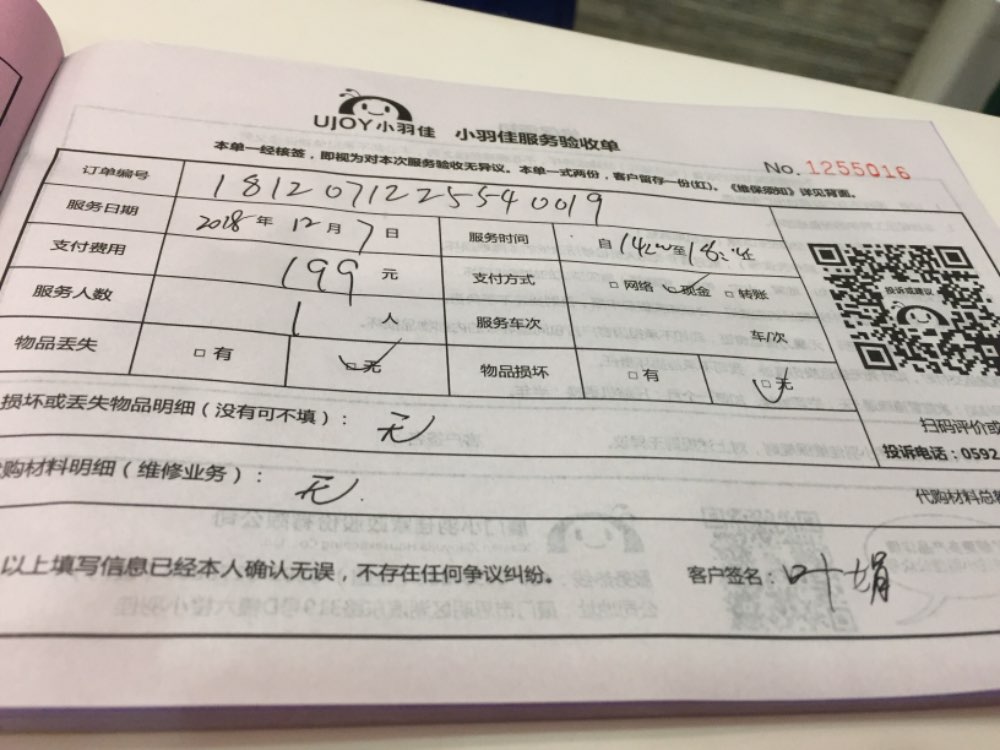 UJOY小羽佳 小羽佳服务验收单
No. 1255016
本单一经核签，即视为对本次服务验收无异议。本单一式两份，客户留存一份(红)。《维保须知》详见背面。
订单编号 1812071225540019
服务日期 2018 年 12 月 7 日 服务时间 自 14:00 至 18:00 止
支付费用 199 元 支付方式 □ 网络 □ 现金 □ 转账
服务人数 1 人 服务车次 车/次
物品丢失 □ 有 □ 无 物品损坏 □ 有 □ 无
投诉或建议
扫码评价或
投诉电话：0592
损坏或丢失物品明细（没有可不填）： 无
购材料明细（维修业务）： 无
代购材料总
以上填写信息已经本人确认无误，不存在任何争议纠纷。 客户签名：叶娟